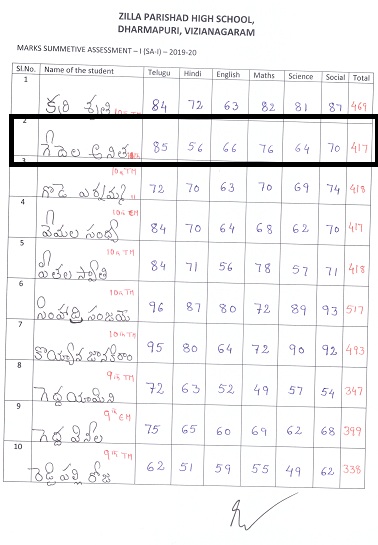 ZILLA PARISHAD HIGH SCHOOL,
DHARMAPURI, VIZIANAGARAM
MARKS SUMMETIVE ASSESSMENT – I (SA-I) – 2019-20
Sl.No. Name of the student Telugu Hindi English Maths Science Social Total
1 84 72 63 82 81 87 469
10th TM
2 గేదెల అనిత 85 56 66 76 64 70 417
3 72 70 63 70 69 74 418
10th EM
4 వేమల సంధ్య 84 70 64 68 62 70 417
10th TM
5 పీతల స్వాతి 84 71 56 78 57 71 418
10th TM
6 సింహాద్రి సంజయ్ 96 87 80 72 89 93 517
10th TM
7 కొయ్యాన జానకిరాం 95 80 64 72 90 92 493
9th TM
8 గెద్ద యామిని 72 63 52 49 57 54 347
9th EM
9 గెద్ద వినీల 75 65 60 69 62 68 399
9th TM
10 రెడ్డిపల్లి రోజా 62 51 59 55 49 62 338